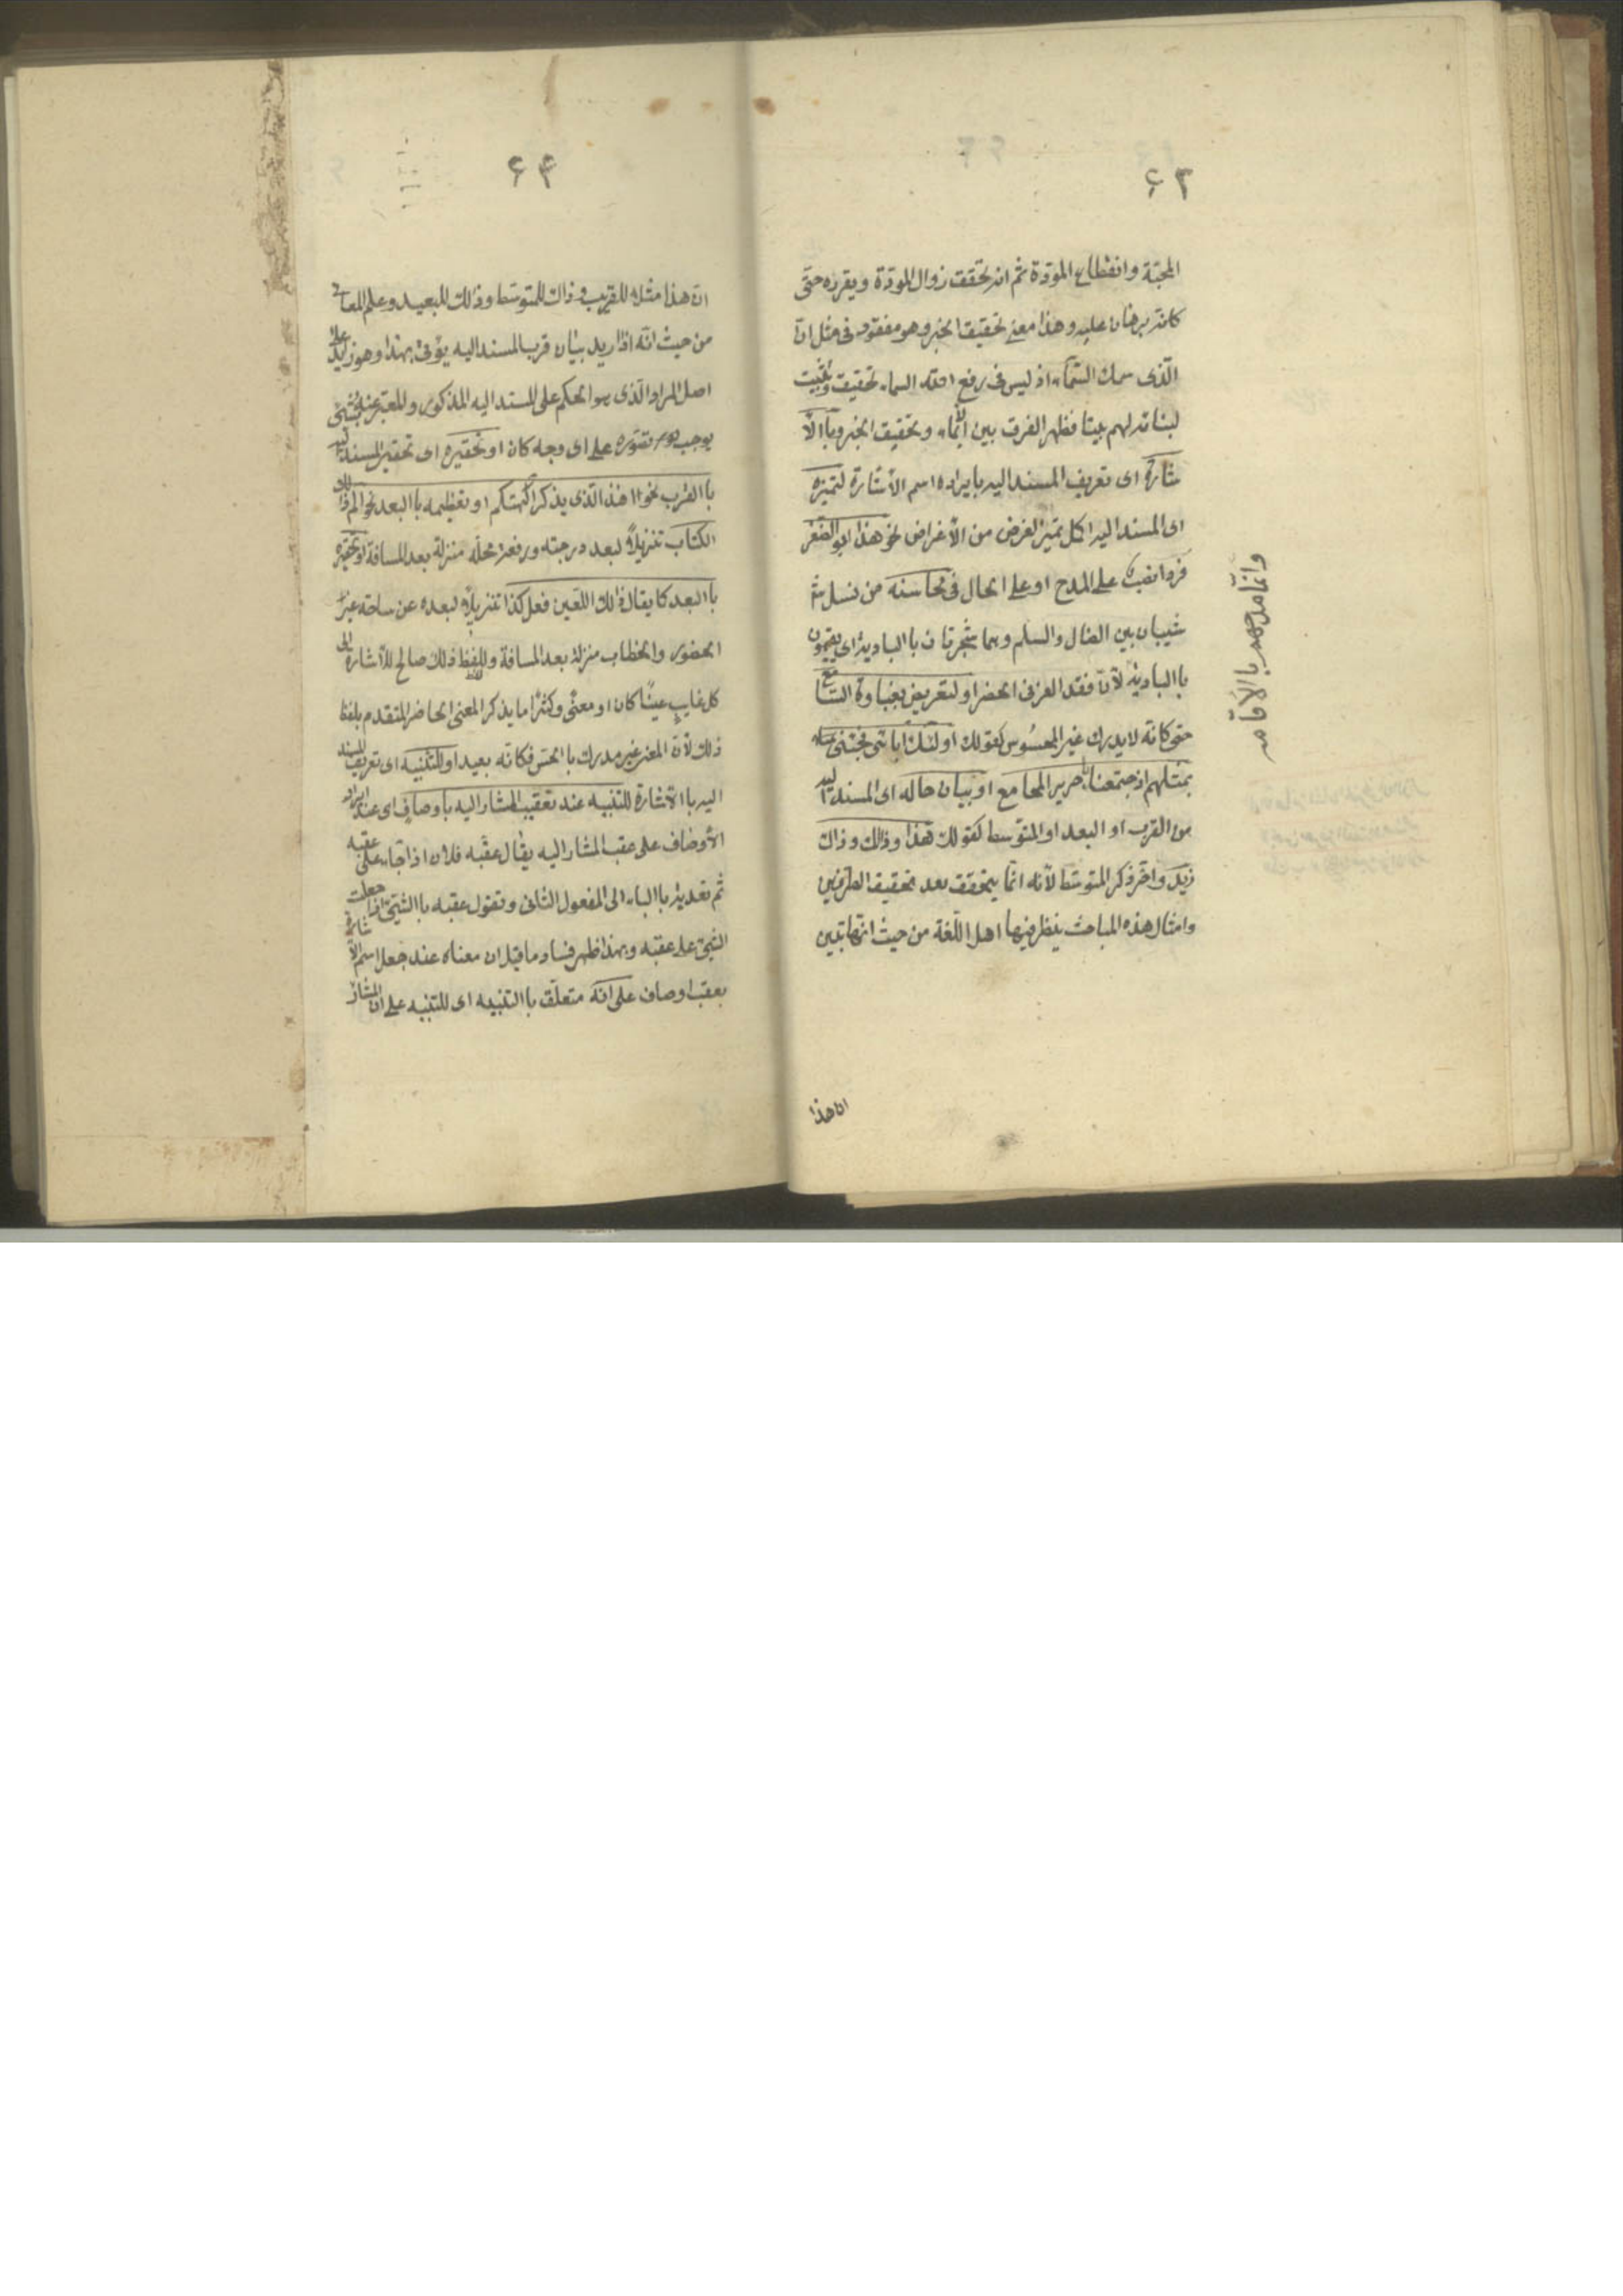 ۶۳
المحبّة وانقطاع المودّة ثم انه تحقق زوال المودّة ويقرره حتّى
كانّه برهان عليه وهذا معنى تحقيق الخبر وهو مفقود فى مثل انّ
الّذى سمك السّماء اذ ليس فى رفع اللّه السماء تحقيق وتثبيت
لبنائه لهم بيتا فظهر الفرق بين الأيماء وتحقيق الخبر وباالأ
شارة اى تعريف المسنداليه بايراده اسم الأشارة لتميزه
اى المسنداليه اكمل تميز لغرض من الأغراض نحو هذا ابوالصقر
فردا نصب على المدح او على الحال فى محاسنه من نسل
شيبان بين الضال والسلم وهما شجرتان باالبادية اى يقيمون
باالبادية لأنّ فقد العز فى الحضر او لتعريض بغباوة السّامع
حتى كانّه لا يدرك غير المحسوس كقولك اولئك ابائى فجئنى
بمثلهم اذ جمعتنا يا جرير المجامع او بيان حاله اى المسنداليه
من القرب او البعد او المتوسط كقولك هذا وذلك وذاك
زيد واخّر ذكر المتوسّط لأنّه انّما يتحقق بعد تحقيق الطرفين
وامثال هذه المباحث ينظر فيها اهل اللّغة من حيث انّها تبين
ان هذا
۶۴
انّ هذا مثلا للقريب وذاك للمتوسّط وذلك للبعيد وعلم المعانى
من حيث انّه اذا اريد بيان قرب المسنداليه يؤتى بهذا وهو زايد على
اصل المراد الّذى هو الحكم على المسنداليه المذكور والمعتبر عنه بشئ
يوجب تصوّره على اى وجه كان او تحقيره اى تحقير المسنداليه
باالقرب نحو اهذا الّذى يذكر الهتكم او تعظيمه باالبعد نحو الم ذلك
الكتاب تنزيلاً لبعد درجته ورفعة محلّه منزلة بعد المسافة او تحقيره
باالبعد كما يقال ذلك اللّعين فعل كذا تنزيلاً لبعده عن ساحة عزّ
الحضور والخطاب منزلة بعد المسافة ولفظ ذلك صالح للأشارة الى
كل غايب عينًا كان او معنًى وكثيرًا ما يذكر المعنى الحاضر المتقدم بلفظ
ذلك لأنّ المعنى غير مدرك باالحسّ فكانّه بعيد او للتّنبيه اى تعريف المسند
اليه باالأشارة للتنبيه عند تعقيب المشاراليه بأوصاف اى عند ايراد
الأوصاف على عقب المشاراليه يقال عقّبه فلان اذا جاء على عقبه
ثم تعديه باالباء الى المفعول الثانى وتقول عقبه باالشئ اذا جعلت
الشئ على عقبه وبهذا ظهر فساد ما قيل ان معناه عند جعل اسم الأشارة
بعقب اوصاف على انّه متعلّق باالتنبيه اى للتنبيه على ان المشار